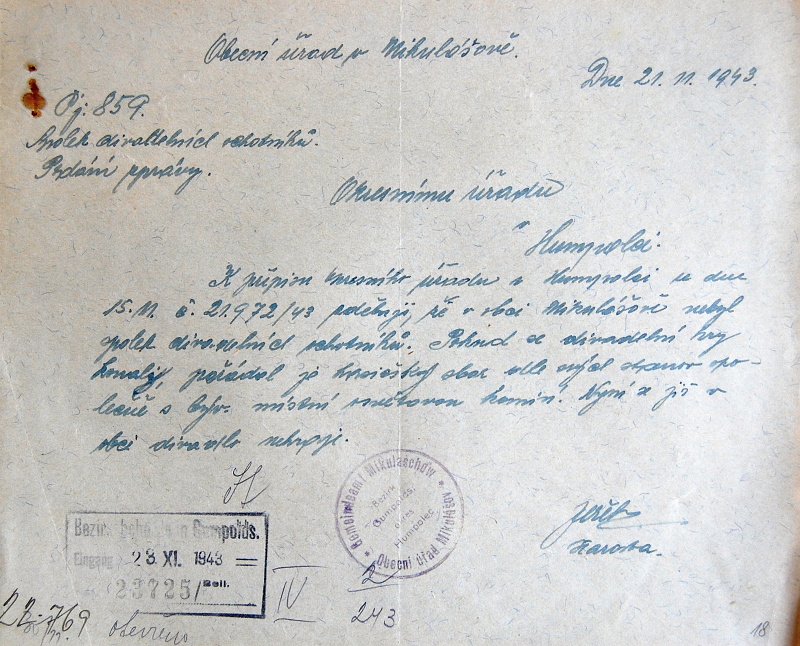 Obecní úřad v Mikulášově.
Dne 21. 11. 1943.
Čj: 859.
Spolek divadelních ochotníků.
Podání zprávy.
Okresnímu úřadu
v Humpolci.
K přípisu okresního úřadu v Humpolci ze dne
15. 11. č. 21.972/43 sděluji, že v obci Mikulášově nebyl
spolek divadelních ochotníků. Pokud se divadelní hry
konaly, pořádal je hasičský sbor dle svých stanov spo-
lečně s býv. místní osvětovou komis. Nyní se již v
obci divadlo nehraje.
Gemeindeamt Mikulaschow
Obecní úřad Mikulášov
Bezirk
Gumpolds.
okres
Humpolec
starosta.
Gumpolds.
Eingang 23. XI. 1943
23725/ Beil.
IV 2
243
22. 769
otevřeno
18